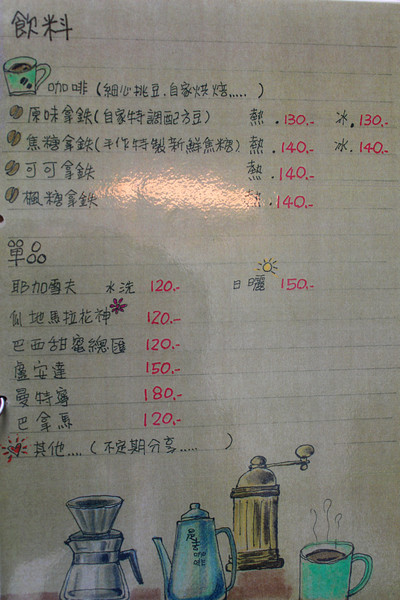 飲料
咖啡（細心挑豆.自家烘焙.....）
原味拿鐵（自家特調配方豆） 熱.130.- 冰.130.-
焦糖拿鐵（手作特製新鮮焦糖） 熱.140.- 冰.140.-
可可拿鐵 熱.140.-
楓糖拿鐵 熱.140.-
單品
耶加雪夫 水洗 120.- 日曬 150.-
瓜地馬拉花神 120.-
巴西甜蜜總匯 120.-
盧安達 150.-
曼特寧 180.-
巴拿馬 120.-
其他....（不定期分享.....）
咖啡